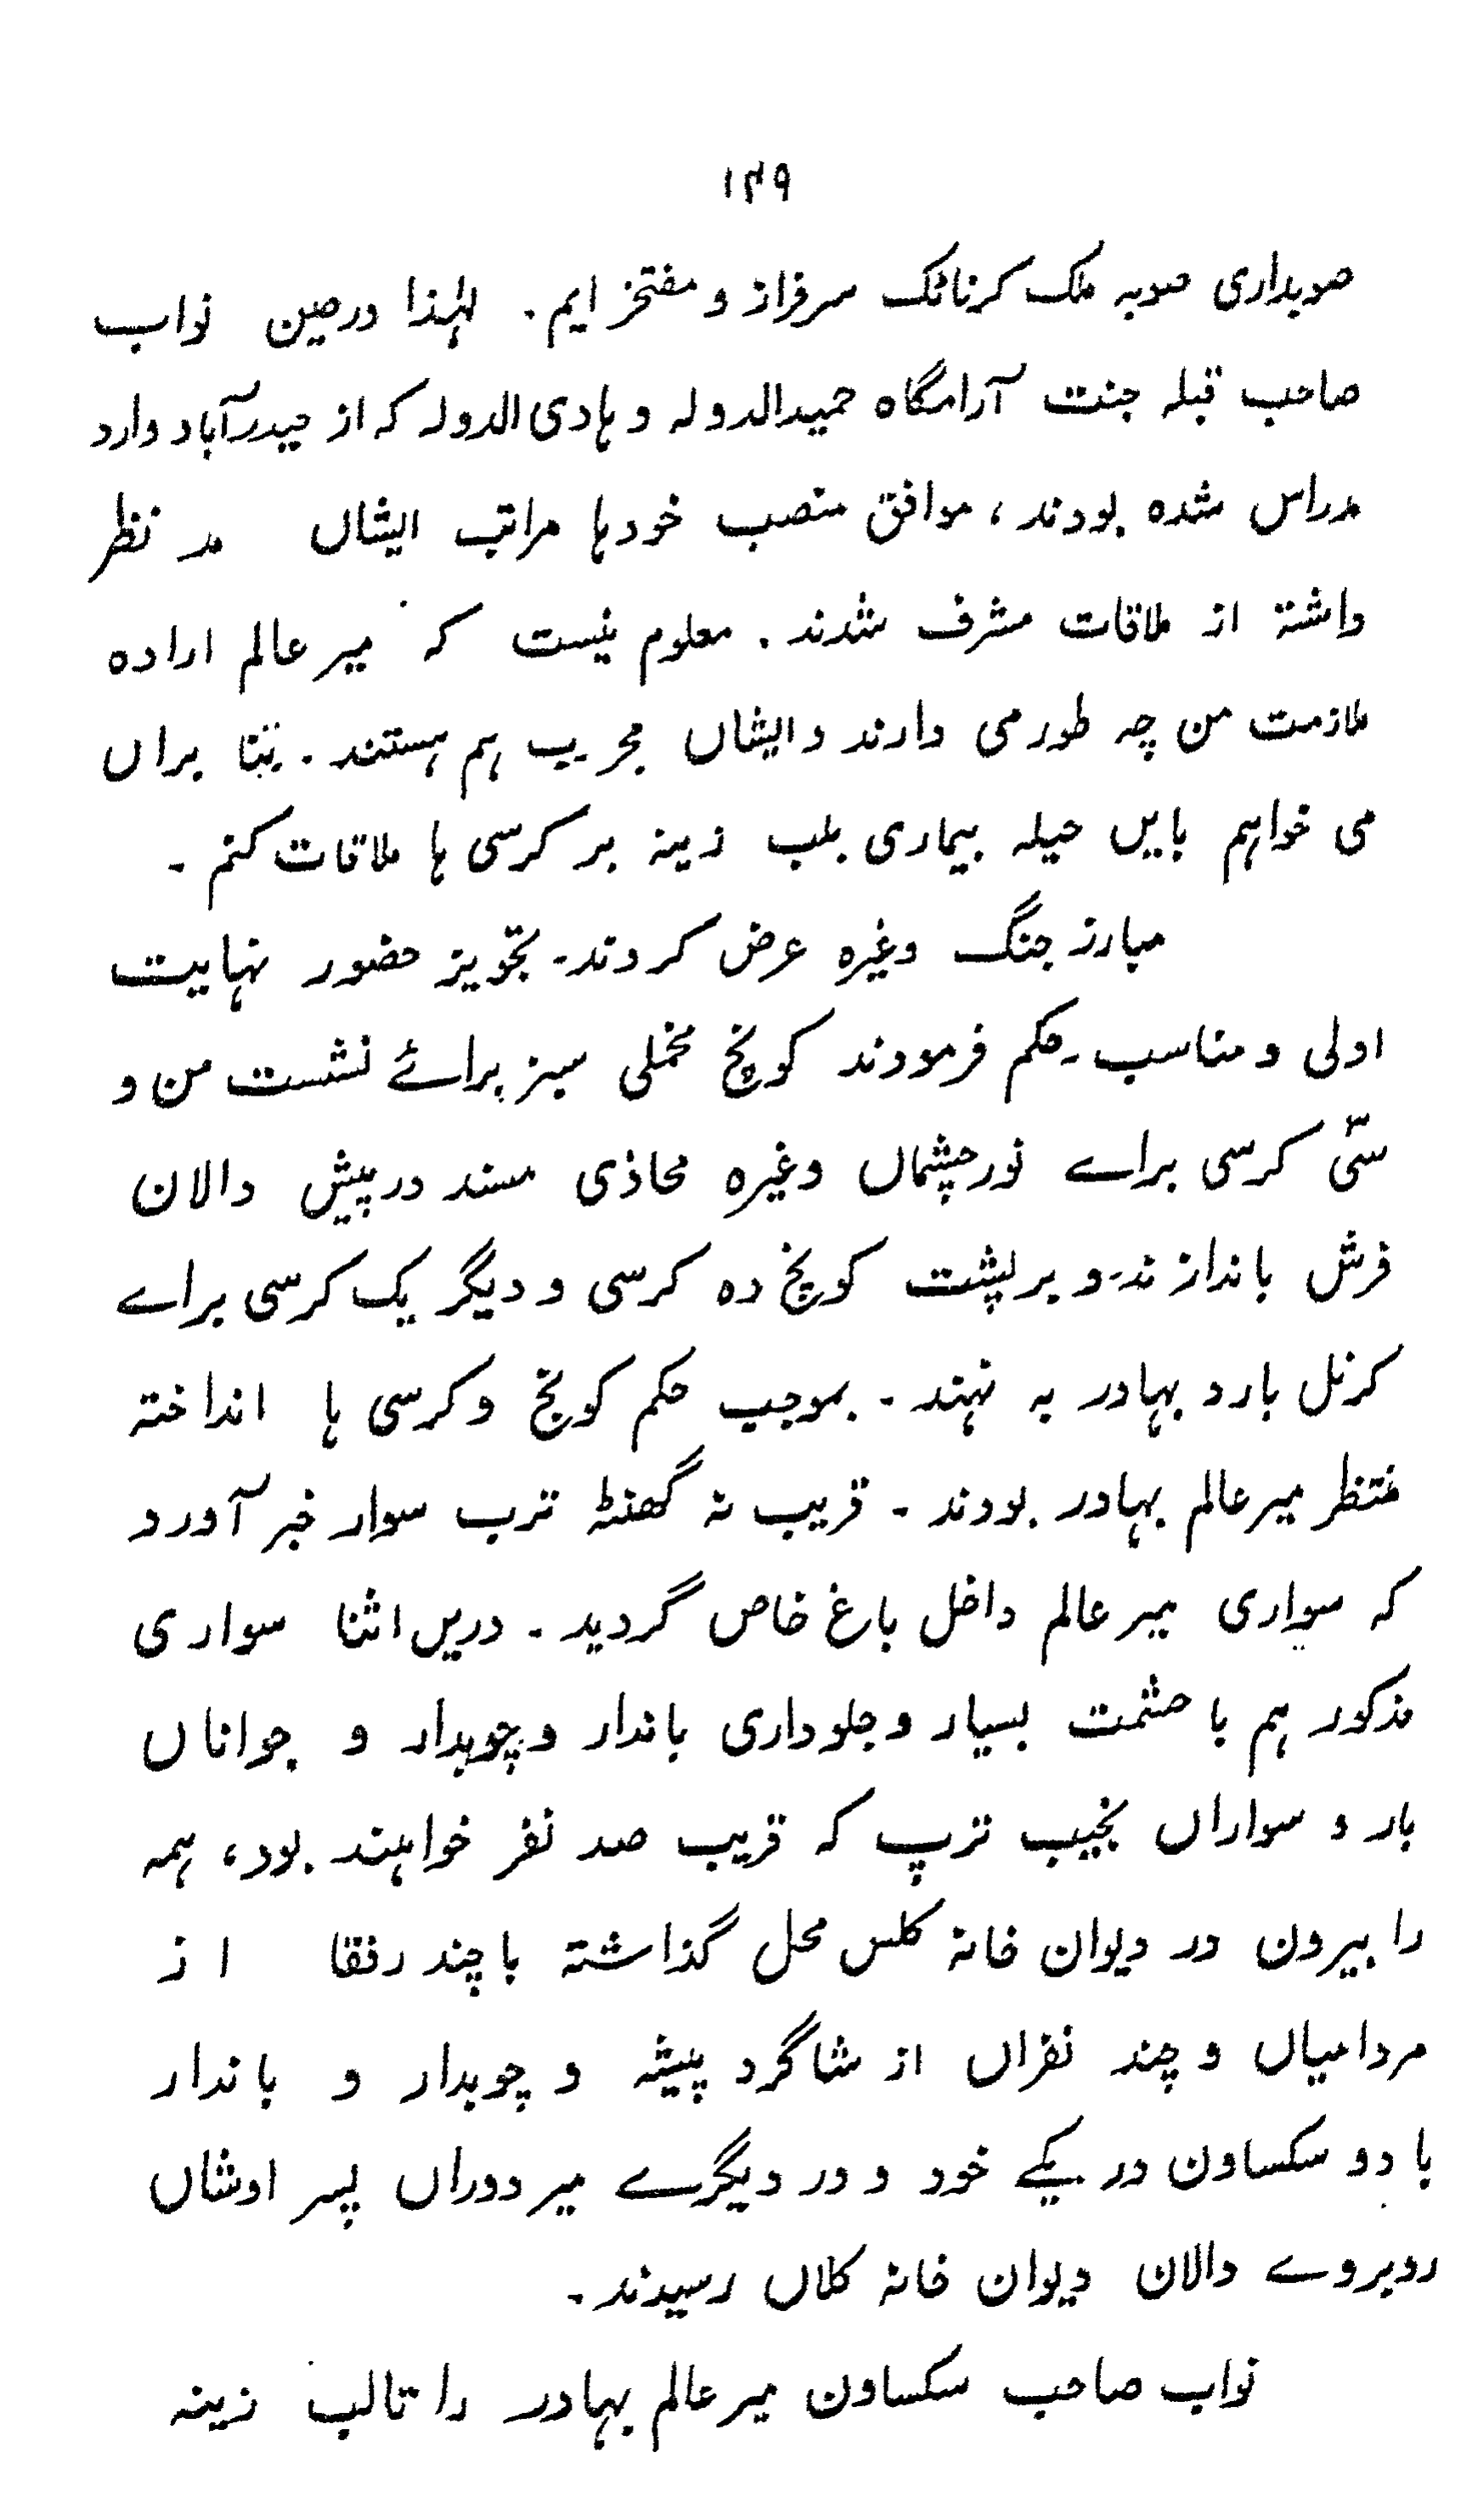 ۱۴۹
صوبداری صوبہ ملک کرناٹک سرفراز و مفتخز ایم. لہٰذا درحین نواب
صاحب قبلہ جنت آرامگاہ حمیدالدولہ و ہادی الدولہ کہ از حیدرآباد وارد
مدراس شدہ بودند، موافق منصب خودہا مراتب ایشاں مد نظر
داشتۃ از ملاقات مشرف شدند. معلوم نیست کہ میر عالم ارادہ
ملازمت من چہ طور می دارند و ایشاں مجرب ہم ہستند۔ بنا براں
می خواہم بایں حیلہ بیماری بلب زینہ بر کرسی ہا ملاقات کنم۔
مبارز جنگ وغیرہ عرض کردند۔ تجویز حضور نہایت
اولی و مناسب۔ حکم فرمودند کوچ مخملی سبز برائے نشست من و
سّی کرسی براے نورچشماں وغیرہ محاذی مسند درپیش دالان
فرش باندازند۔ و برپشت کوچ دہ کرسی و دیگر یک کرسی براے
کرنل بارد بہادر بہ نہند۔ بموجب حکم کوچ وکرسی ہا انداختہ
منتظر میر عالم بہادر بودند۔ قریب نہ گھنٹہ ترب سوار خبر آورد
کہ سواری میر عالم داخل باغ خاص گردید۔ دریں اثنا سواری
مذکور ہم با حشمت بسیار و جلوداری باندار و چوبدار و جواناں
بار و سواراں نجیب ترپ کہ قریب صد نفر خواہند بود، ہمہ
را بیرون در دیوان خانہ کلس محل گذاشتہ با چند رفقا از
مردامیاں و چند نفراں از شاگرد پیشہ و چوبدار و باندار
با دو سکساون در یکے خود و در دیگرے میر دوراں پسر اوشاں
روبروے دالان دیوان خانہ کلاں رسیدند۔
نواب صاحب سکساون میر عالم بہادر را تالب زینہ